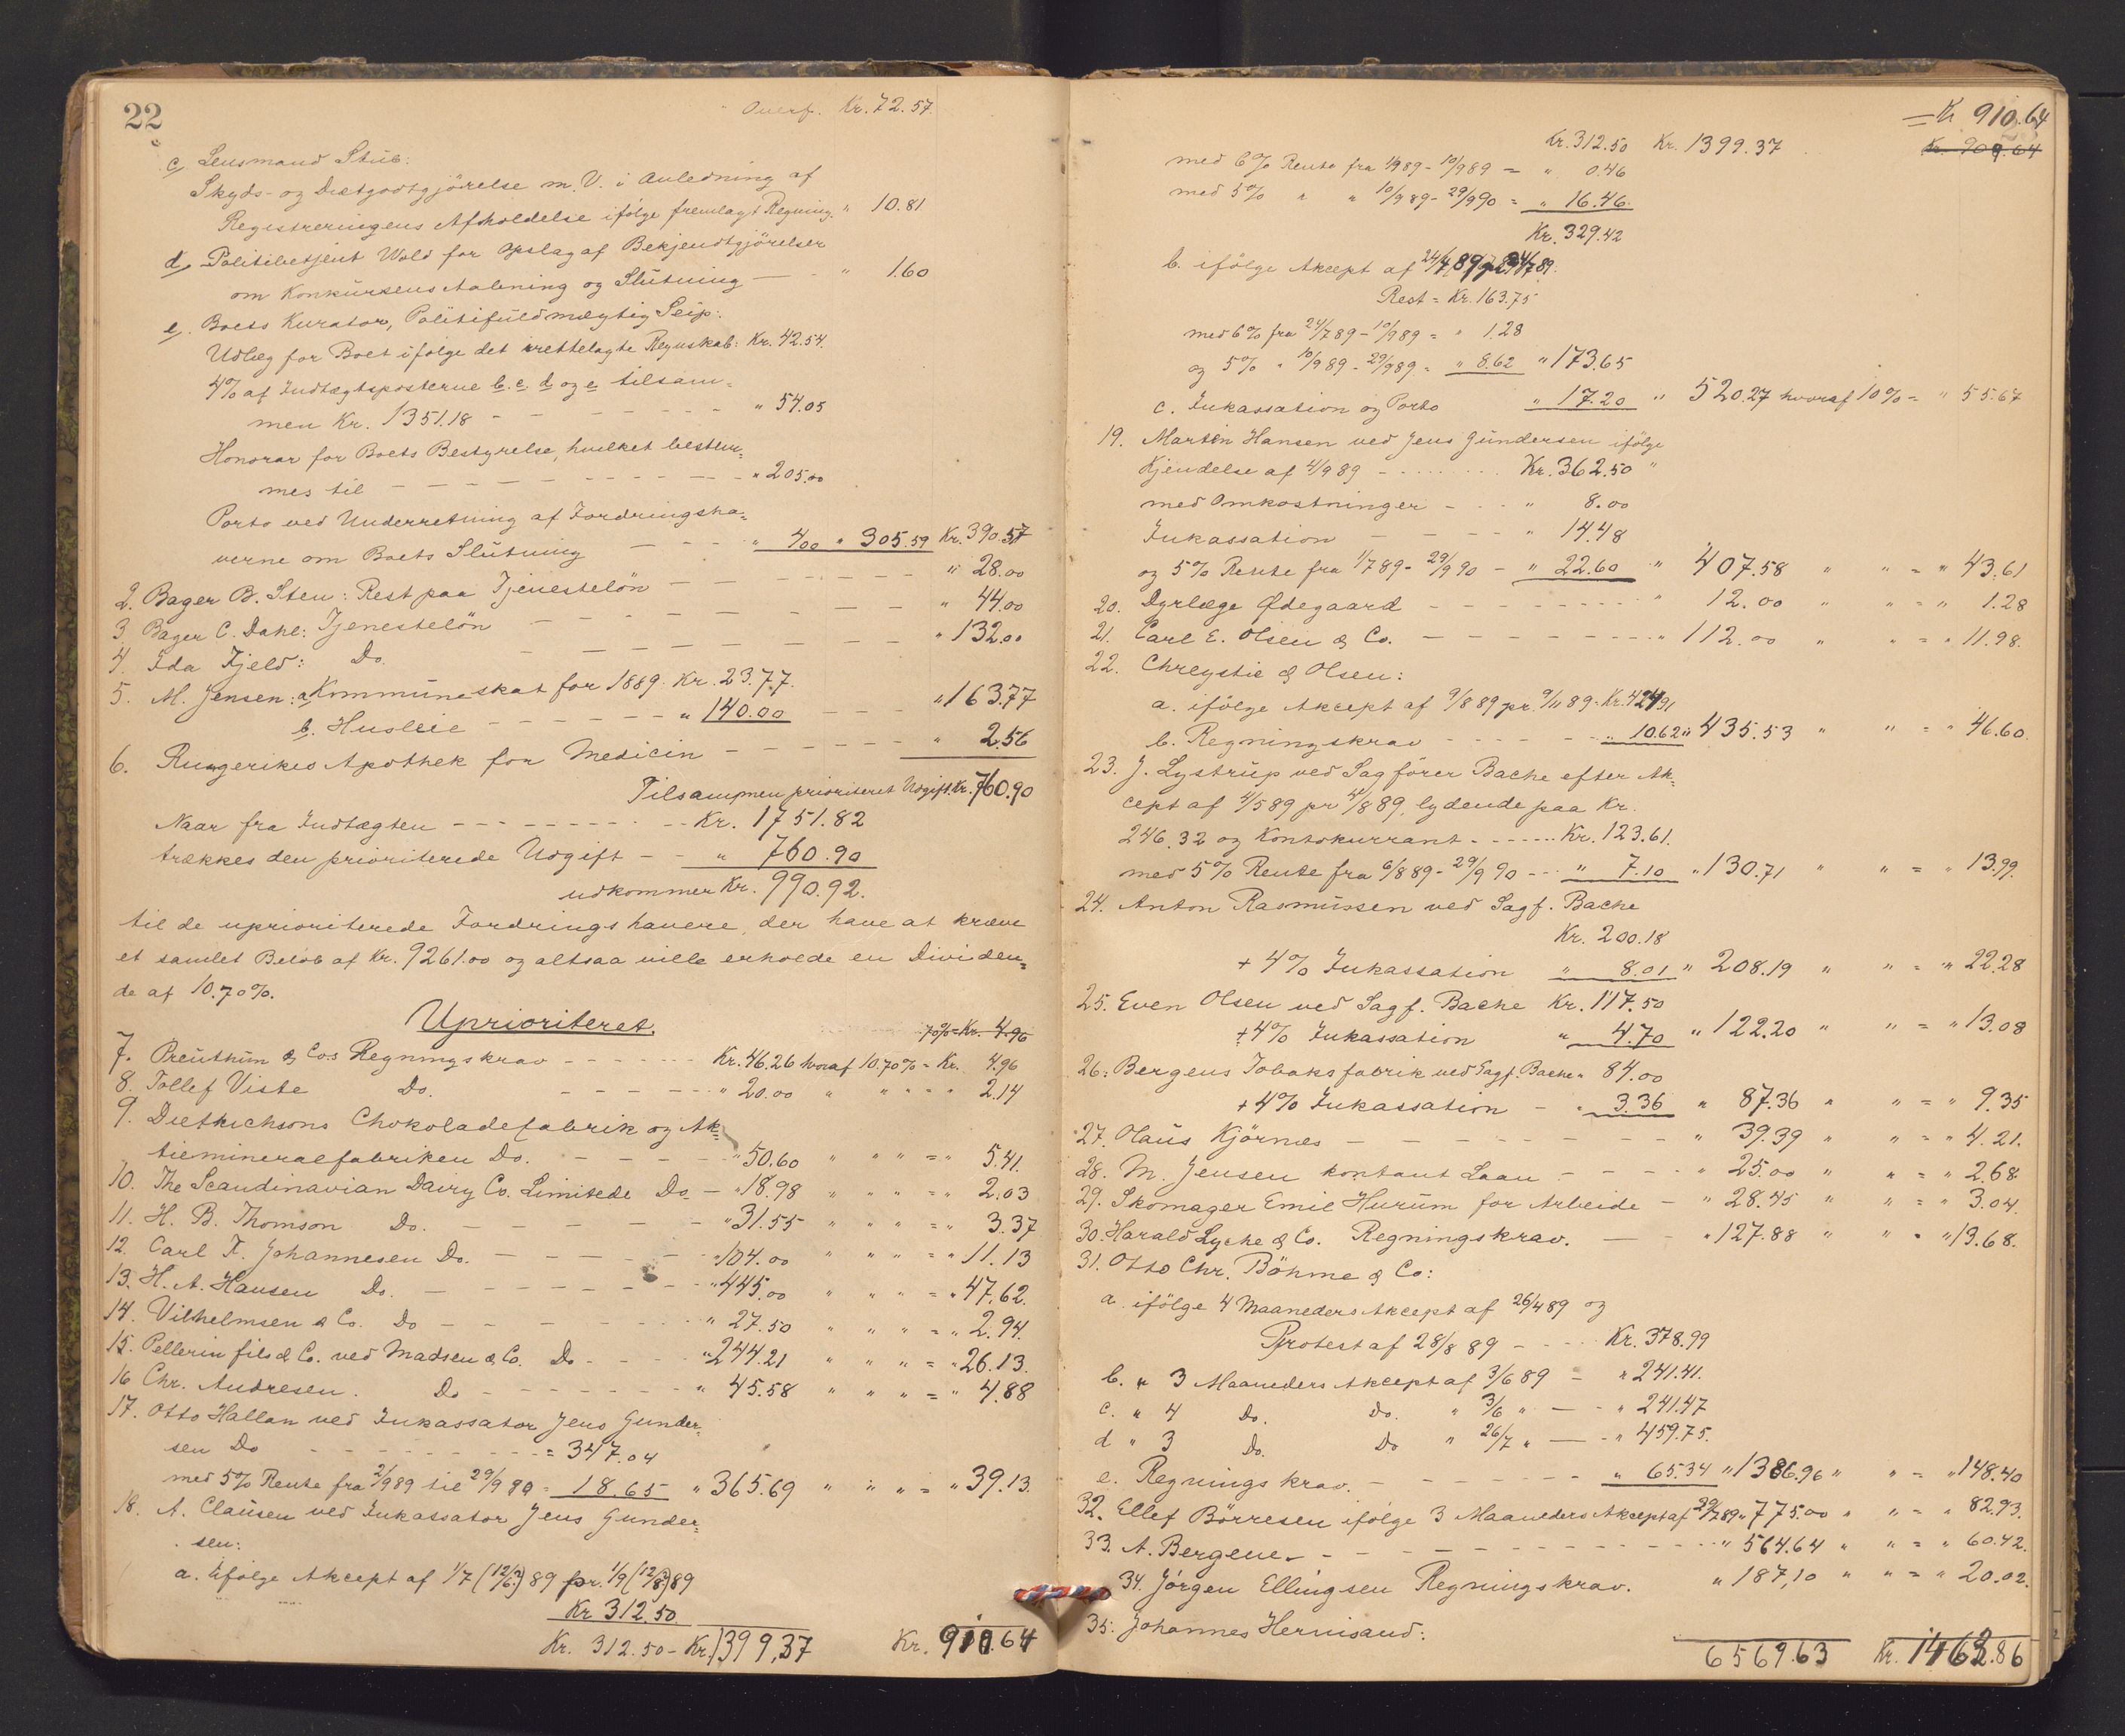 22
Overf. Kr. 72.57.
c, Lensmand Stub:
Skyds- og Diætgodtgjörelse m. V. i Anledning af
Registreringens Afholdelse ifölge fremlagt Regning. " 10.81
d, Politibetjent Wold for Opslag af Bekjendtgjörelser
om Konkursens Aabning og Slutning — " 1.60
e, Boets Kurator, Politifuldmægtig Seip:
Udlæg for Boet ifölge det irettelagte Regnskab: Kr. 42.54.
4% af Indtægtsposterne b. c. d og e tilsam=
men Kr. 1351.18 - - - - - - - " 54.05
Honorar for Boets Bestyrelse, hvilket bestem=
mes til - - - - - - - - - " 205.00
Porto ved Underretning af Fordringsha=
verne om Boets Slutning — - - - " 4/00 " 305.59 Kr. 390.57
2. Bager B. Sten: Rest paa Tjenestelön — - - - - - - " 28.00
3. Bager C. Dahl: Tjenestelön - - - - - - - - " 44.00
4. Ida Fjeld: Do. - - - - - - - " 132.00
5. M. Jensen: a, Kommuneskat for 1889. Kr. 23.77.
b. Husleie - - - - - - " 140.00 - - - " 163.77
6. Ringerikes Apothek for Medicin - - - - - - " 2.56
Tilsammen prioriteret Udgift. Kr. 760.90
Naar fra Indtægten - - - - - - - - Kr. 1751.82
trækkes den prioriterede Udgift - - " 760.90
udkommer Kr. 990.92.
til de uprioriterede Fordringshavere, der have at kræve
et samlet Belöb af Kr. 9261.00 og altsaa ville erholde en Dividen=
de af 10.70%.
Uprioriteret.
70% = Kr. 4.96
7. Preuthun & Cos Regningskrav - - - - - Kr. 46.26 hvoraf 10.70% = Kr. 4.96
8. Tollef Viste Do. - - - - - " 20.00 " " " " 2.14
9. Diethrichsons Chokoladefabrik og Ak=
tiemineralfabriken Do. - - - - - " 50.60 " " " = " 5.41.
10. The Scandinavian Dairy Co. Limitede Do. - " 18.98 " " " = " 2.03
11. H. B. Thomson Do. - - - - - - " 31.55 " " " = " 3.37
12. Carl F. Johannesen Do. - - - - - " 104.00 " " " = " 11.13
13. H. A. Hansen Do. - - - - - - " 445.00 " " " = " 47.62.
14. Vilhelmsen & Co. Do - - - - - - " 27.50 " " " = " 2.94.
15. Pellerin fils & Co. ved Madsen & Co. Do - - - " 244.21 " " " = " 26.13.
16 Chr. Andresen. Do - - - - - - " 45.58 " " " = " 4.88
17. Otto Hallan ved Inkassator Jens Gunder=
sen Do - - - - - - - = 347.04 "
med 5% Rente fra 2/9 89 til 29/9 90 = 18.65 " 365.69 " " " = " 39.13.
18. A. Clausen ved Inkassator Jens Gunder=
sen:
a. ifölge Akcept af 1/7 (12/6?) 89 pr. 1/9 (12/8?) 89
Kr 312.50
Kr. 312.50 - Kr. 1399,37 Kr. 910.64
= Kr 910.64
Kr. 909.64
Kr. 312.50 Kr. 1399.37
med 6% Rente fra 1/9 89 - 10/9 89 = " 0.46
med 5% " " 10/9 89 - 29/9 90 = " 16.46.
Kr. 329.42
b. ifölge Akcept af 24/4 89 pr. 24/7 89.
Rest = Kr. 163.75
med 6% fra 24/7 89 - 10/9 89 = " 1.28
og 5% " 10/9 89 - 29/9 89 = " 8.62 " 173.65
c. Inkassation og Porto " 17.20 " 520.27 hvoraf 10% = " 55.67
19. Martin Hansen ved Jens Gundersen ifölge
Kjendelse af 4/9 89 - - - - - - Kr. 362.50 "
med Omkostninger - - - " 8.00
Inkassation - - - - - " 14.48
og 5% Rente fra 1/7 89 - 29/9 90 - " 22.60 " 407.58 " " = " 43.61
20. Dyrlæge Ødegaard - - - - - - - - " 12.00 " " = " 1.28
21. Carl E. Olsen & Co. - - - - - - - - " 112.00 " " = " 11.98.
22. Chreystie & Olsen:
a. ifölge Akcept af 9/8 89 pr. 9/11 89 - Kr. 424.91
b. Regningskrav - - - - - - " 10.62 " 435.53 " " = " 46.60.
23. J. Lystrup ved Sagförer Bache efter Ak=
cept af 4/5 89 pr 4/8 89, lydende paa Kr.
246.32 og Kontokurrant - - - - - Kr. 123.61.
med 5% Rente fra 6/8 89 - 29/9 90 - - - " 7.10 " 130.71 " " = " 13.99.
24. Anton Rasmussen ved Sagf. Bache
Kr. 200.18
+ 4% Inkassation " 8.01 " 208.19 " " = " 22.28
25. Even Olsen ved Sagf. Bache Kr. 117.50
+ 4% Inkassation " 4.70 " 122.20 " " = " 13.08
26. Bergens Tobaksfabrik ved Sagf. Bache " 84.00
+ 4% Inkassation - " 3.36 " 87.36 " " = " 9.35
27. Olaus Kjörnæs - - - - - - - - " 39.39 " " = " 4.21.
28. M. Jensen kontant Laan - - - - " 25.00 " " = " 2.68
29. Skomager Emil Hurum for Arbeide - " 28.45 " " = " 3.04.
30. Harald Lyche & Co. Regningskrav. - - " 127.88 " " = " 13.68.
31. Otto Chr. Böhme & Co:
a. ifölge 4 Maaneders Akcept af 26/4 89 og
Protest af 28/8 89 - - - Kr. 378.99
b. " 3 Maaneders Akcept af 3/6 89 = " 241.41.
c. " 4 Do. Do. " 3/6 " - - " 241.47
d " 3 Do. Do " 26/7 " - - " 459.75.
e. Regningskrav. - - - - - - " 65.34 " 1386.96 " " = " 148.40
32. Ellef Börresen ifölge 3 Maaneders Akcept af 29/7 89 " 775.00 " " = " 82.93.
33. A. Bergene - - - - - - - - - " 564.64 " " = " 60.42.
34. Jörgen Ellingsen Regningskrav. " 187,10 " " = " 20.02.
35. Johannes Hernisand:
6569.63 Kr. 1463.86